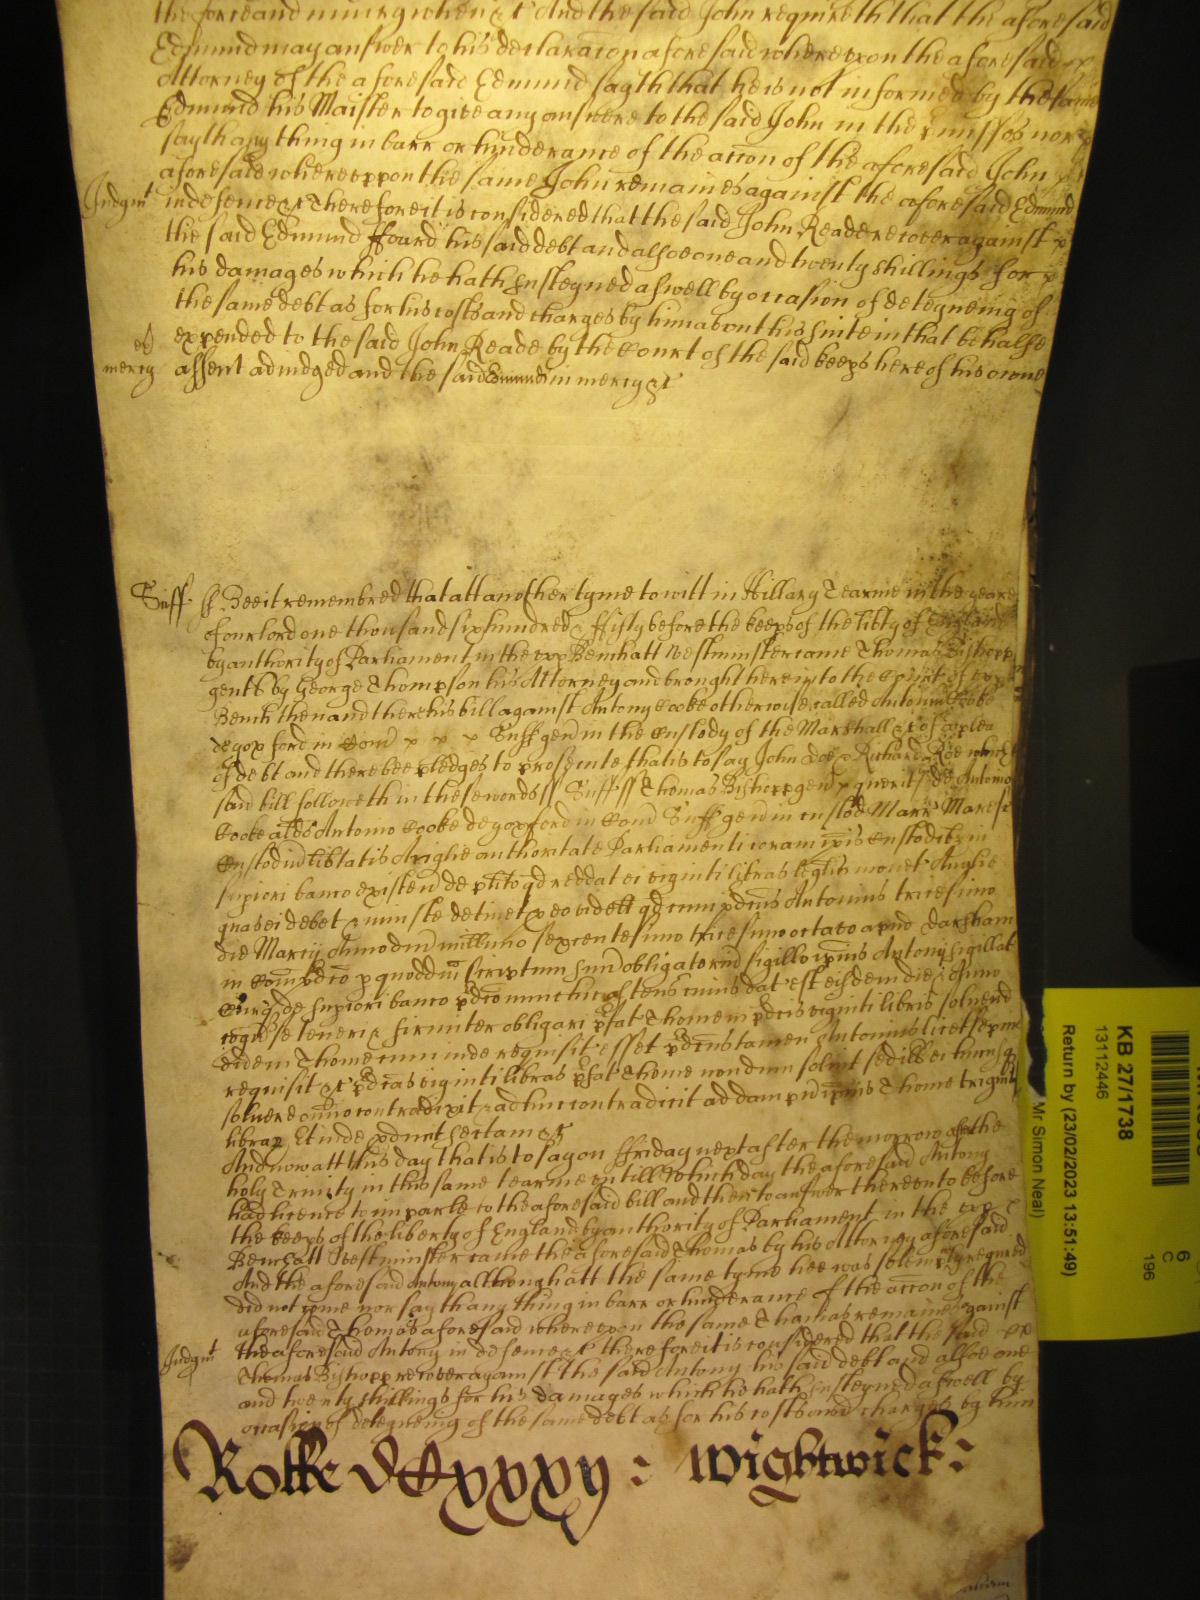 the force and iniury when &c And the said John requireth that the aforesaid
Edmund may answer to his declaracon aforesaid whereupon the aforesaid
Attorney of the aforesaid Edmund sayth that he is not informed by the same
Edmund his Maister to give any answere to the said John in the p'misses nor
sayth any thing in barr or hinderance of the accon of the aforesaid John
aforesaid whereuppon the same John remaines against the aforesaid Edmund
Judgmt in defence &c Therefore it is considered that the said John Reade recover against
the said Edmund ffoard his said debt and alsoe one and twenty shillings for
his damages which he hath susteyned aswell by occasion of deteyneing of
the same debt as for his costs and charges by him about his suite in that behalfe
expended to the said John Reade by the Court of the said keeps here of his owne
mercy assent adiudged and the said Edmund in mercy &c
Suff ss Bee it remembred that att another tyme to witt in Hillary Tearme in the yeare
of our lord one thousand six hundred & ffifty before the keeps of the libty of England
by authority of Parliament in the upp Bench att Westminster came Thomas Bishopp
gent by George Thompson his Attorney and brought here into the Court of upp
Bench then and there his bill against Antony Cooke otherwise called Antony Cooke
de yoxford in Com Suff gen in the Custody of the Marshall &c of a plea
of debt and there bee pledges to prosecute that is to say John Doe & Richard Roe which
said bill followeth in these words ss Suff ss Thomas Bishopp gen querit de Antonio
Cooke als Antonio Cooke de yoxford in Com Suff gen in custod Marr Maresc
Custodu libtatis Anglie authoritate Parliamenti coram ipis Custodibz in
supiori banco existen de plito qd reddat ei viginti libras leglis monet Anglie
quas ei debet & iniuste detinet p eo videlt qd cum pdcus Antonius tricesimo
die Marcij Anno dni millimo sexcentesimo tricesimo octavo apud Darsham
in Com pdco p quoddm scriptum suu obligatoriu sigillo ipius Antonij sigillat
Cur de supiori banco pdco cuius dat est eisdem die & Anno
cogn se teneri & firmiter obligari pfat Thome in pdcis viginti libris solvend
eidem Thome cum inde requisit esset pdcus tamen Antonius licet sepius
requisit &c pdcas viginti libras pfat Thome nondum solvit sed ill ei
solvere omnio contradixit & adhuc contradicit ad dampnu ipius Thome triginta
librar Et inde pducit sectam &c
And now att this day that is to say on ffriday next after the morrow of the
holy Trinity in this same tearme untill which day the aforesaid Antony
had licence to imparle to the aforesaid bill and then to answer thereunto before
the keeps of the liberty of England by authority of Parliament in the upp
Bench att Westminster came the aforesaid Thomas by his Attorney aforesaid
And the aforesaid Antony although att the same tyme hee was solemply required
did not come nor sayth any thing in barr or hinderance of the accon of the
aforesaid Thomas aforesaid whereupon the same Thomas remaines against
the aforesaid Antony in defence &c therefore it is considered that the said
Judgmt Thomas Bishopp recover against the said Antony his said debt and alsoe one
and twenty shillings for his damages which he hath susteyned aswell by
occasion of deteyneing of the same debt as for his costs and charges by him
Rolle DCxxxij : Wightwick :
KB 27/1738
13112446
Return by (23/02/2023 13:51:49)
Mr Simon Neal)
6
C
196